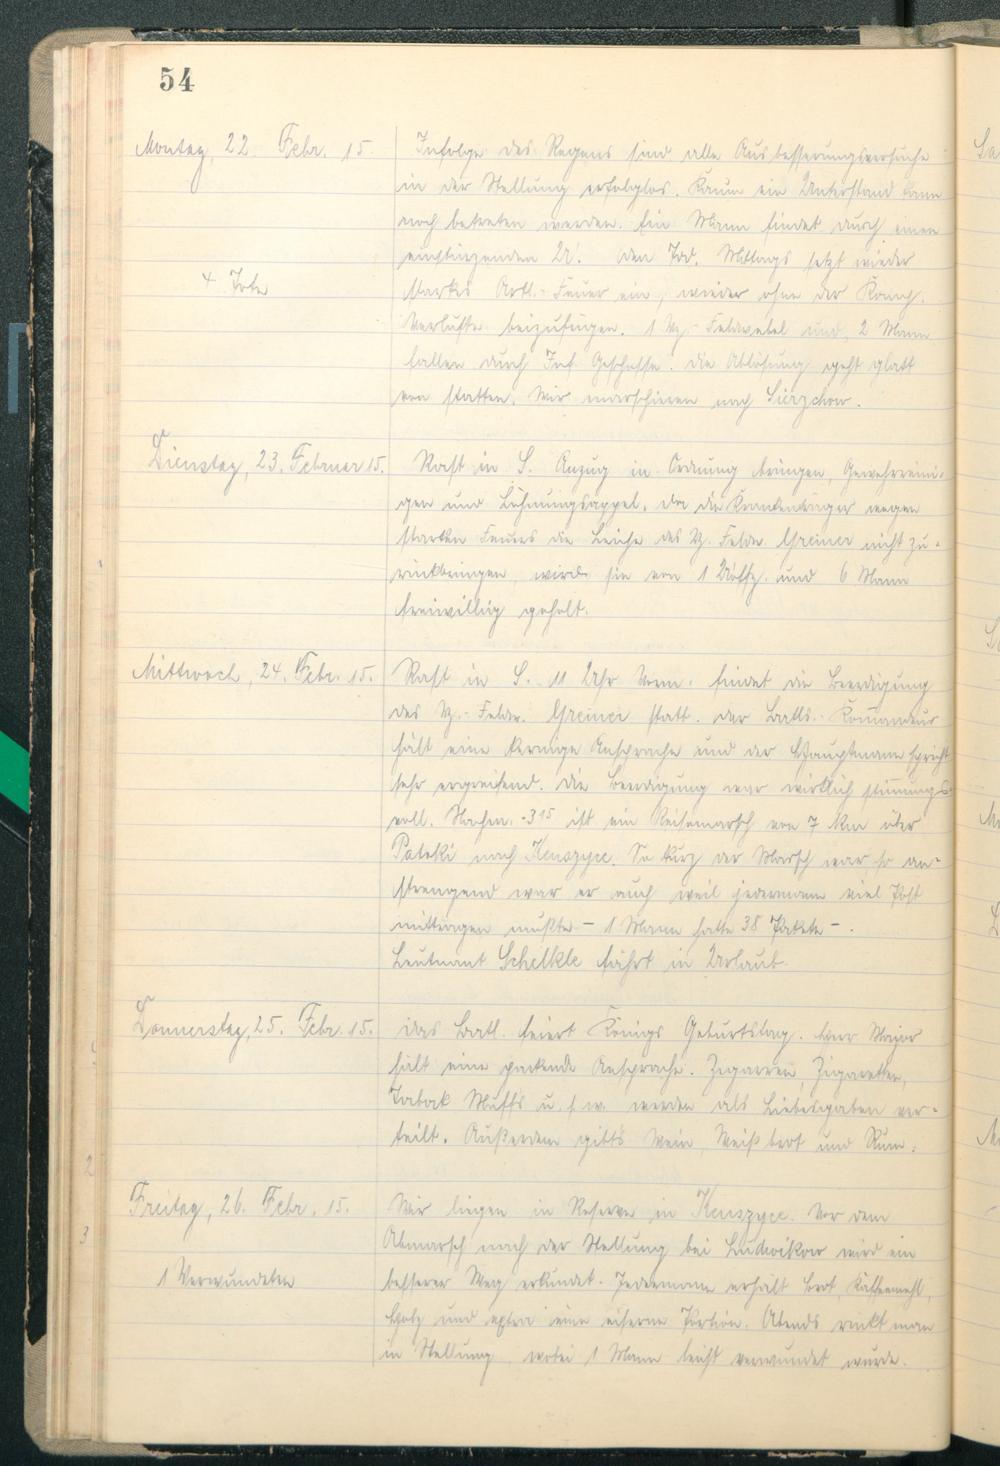 54
Montag, 22. Febr. 15.
Infolge des Regens sind alle Ausbesserungsversuche
in der Stellung erfolglos. Kaum ein Unterstand kann
noch betreten werden. Ein Mann findet durch einen
einstürzenden U. den Tod. Mittags setzt wieder
4 Tote
starkes Artl.-Feuer ein, wieder ohne der Komp.
Verluste beizufügen. 1 Vz.-Feldwebel und 2 Mann
fallen durch Inf. Geschosse. Die Ablösung geht glatt
von statten. Wir marschieren nach Sierzchow.
Dienstag, 23. Februar 15.
Rast in S. Anzug in Ordnung bringen, Gewehrreini-
gen und Löhnungsappel. Da die Krankenträger wegen
starken Feuers die Leiche des Vz. Feldw. Greiner nicht zu-
rückbringen, wird sie von 1 Uoffz. und 6 Mann
freiwillig geholt.
Mittwoch, 24. Febr. 15.
Rast in S. 11 Uhr Vorm. findet die Beerdigung
des Vz.-Feldw. Greiner statt. Der Batls.-Komandeur
hält eine kernige Ansprache und der Hauptmann spricht
sehr ergreifend. Die Beerdigung war wirklich stimmungs-
voll. Nachm. 3 15 ist ein Reisemarsch von 7 km über
Pateki nach Kenszyce. So kurz der Marsch war so an-
strengend war er auch weil jedermann viel Post
mittragen mußte – 1 Mann hatte 38 Pakete –.
Leutnant Schelkle fährt in Urlaub.
Donnerstag, 25. Febr. 15.
Das Batl. feiert Königs Geburtstag. Herr Major
hält eine packende Ansprache. Zigarren, Zigaretten,
Tabak Muffs u.s.w. werden als Liebesgaben ver-
teilt. Außerdem gibts Wein, Weißbrot und Rum.
Freitag, 26. Febr. 15.
Wir liegen in Reserve in Kenszyce. Vor dem
Abmarsch nach der Stellung bei Ludwikow wird ein
1 Verwundeter
besserer Weg erkundet. Jedermann erhält Brot, Kaffeemehl,
Holz und extra eine eiserne Portion. Abends rückt man
in Stellung, wobei 1 Mann leicht verwundet wurde.